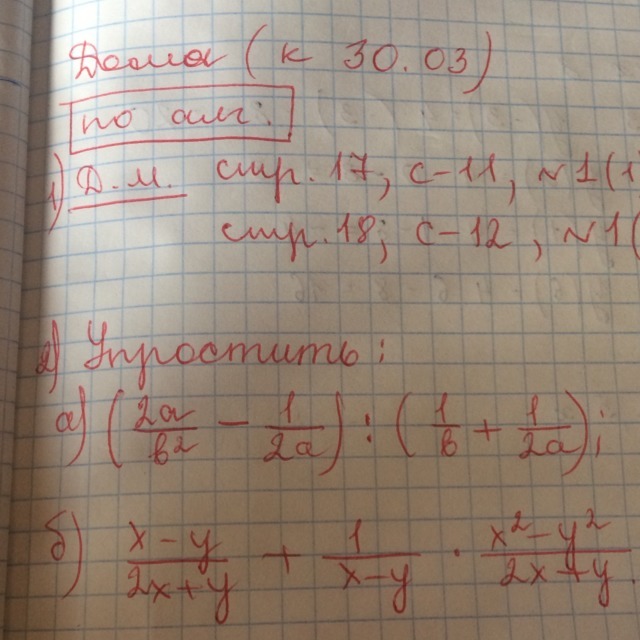 Дома (к 30.03)
по алг.
1) Д.м. стр. 17, С-11, №1(1
стр. 18; С-12, №1(
2) Упростить:
а) (2a/b² − 1/2a) : (1/b + 1/2a);
б) x−y/2x+y + 1/x−y · x²−y²/2x+y